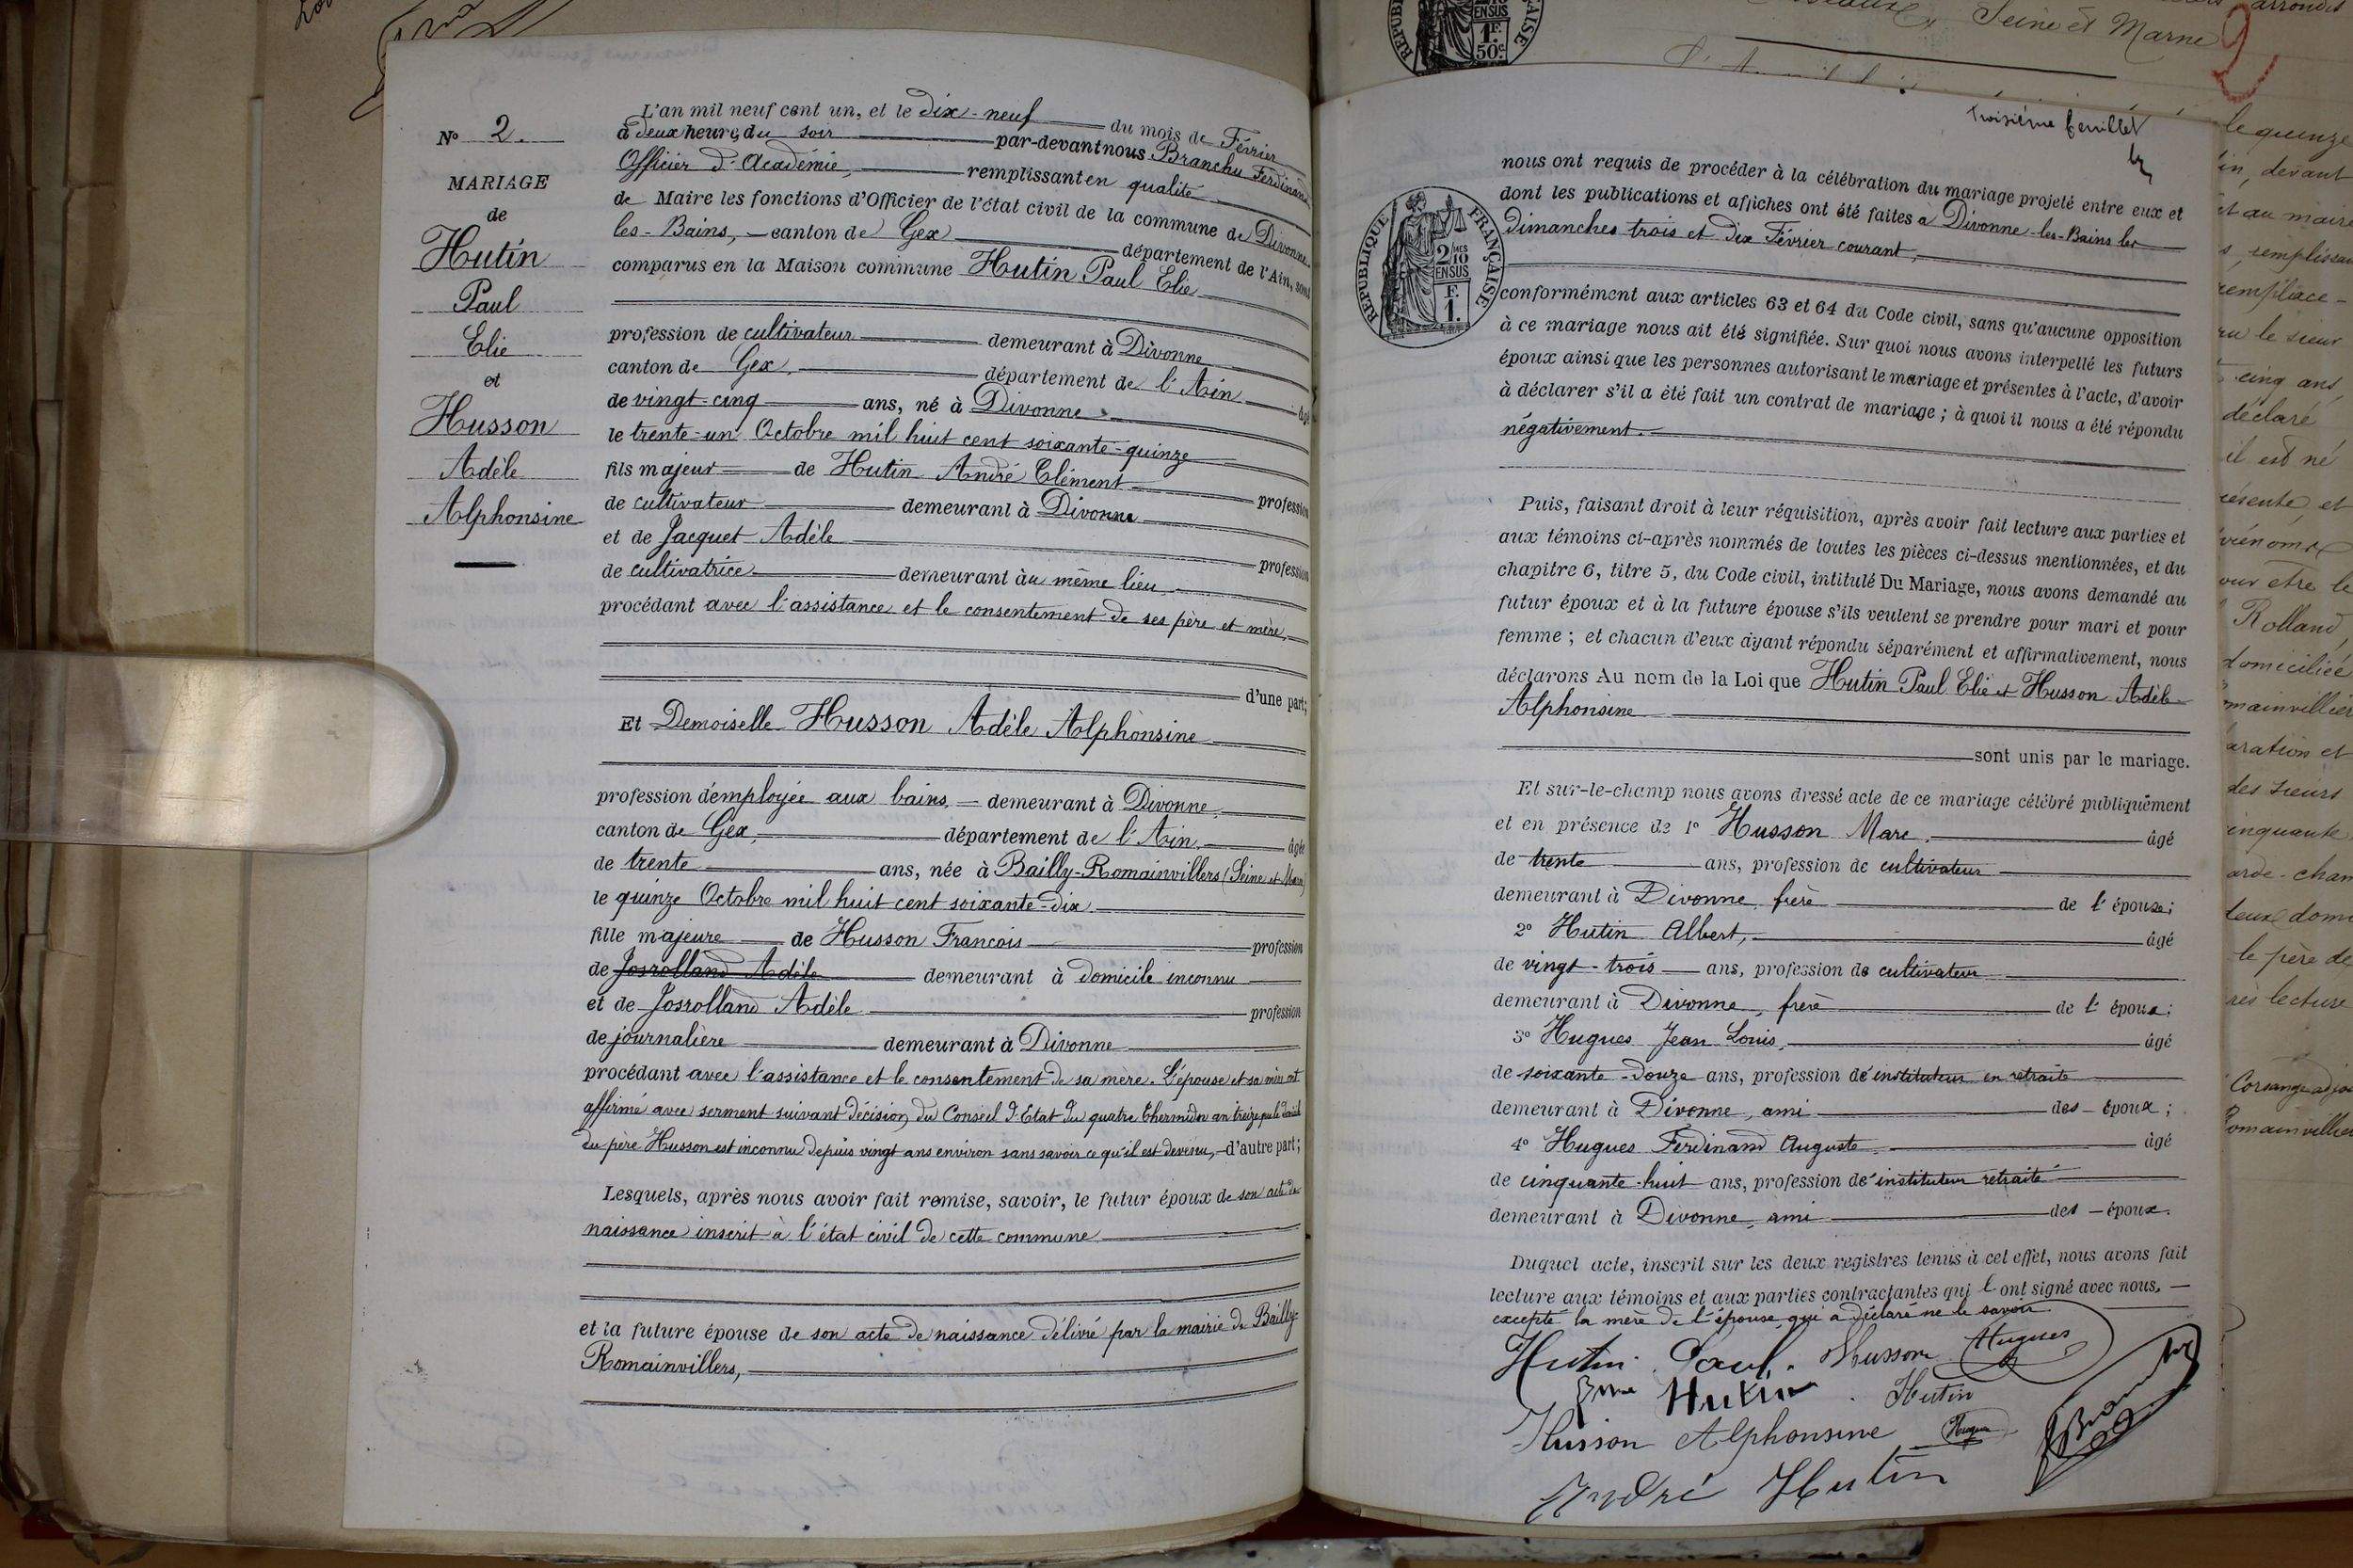 N° 2.
MARIAGE
de
Hutin
Paul
Elie
et
Husson
Adèle
Alphonsine
L'an mil neuf cent un, et le dix-neuf du mois de Février
à deux heures du soir par-devant nous Branchu Ferdinand
Officier d'Académie, remplissant en qualité
de Maire les fonctions d'Officier de l'état civil de la commune de Divonne-
les-Bains, canton de Gex département de l'Ain, sont
comparus en la Maison commune Hutin Paul Elie
profession de cultivateur demeurant à Divonne
canton de Gex, département de l'Ain âgé
de vingt-cinq ans, né à Divonne
le trente-un Octobre mil huit cent soixante-quinze
fils majeur de Hutin André Clément profession
de cultivateur demeurant à Divonne
et de Jacquet Adèle profession
de cultivatrice demeurant au même lieu
procédant avec l'assistance et le consentement de ses père et mère,
d'une part;
Et Demoiselle Husson Adèle Alphonsine
profession d'employée aux bains, demeurant à Divonne,
canton de Gex, département de l'Ain, âgée
de trente ans, née à Bailly-Romainvillers (Seine et Marne)
le quinze Octobre mil huit cent soixante-dix
fille majeure de Husson François profession
de Josrolland Adèle demeurant à domicile inconnu
et de Josrolland Adèle profession
de journalière demeurant à Divonne
procédant avec l'assistance et le consentement de sa mère. L'épouse et sa mère ont
affirmé avec serment suivant décision du Conseil d'Etat du quatre thermidor an treize que le domicile
du père Husson est inconnu depuis vingt ans environ sans savoir ce qu'il est devenu, d'autre part;
Lesquels, après nous avoir fait remise, savoir, le futur époux de son acte de
naissance inscrit à l'état civil de cette commune
et la future épouse de son acte de naissance délivré par la mairie de Bailly-
Romainvillers,
Seine et Marne
2
Troisième feuillet
nous ont requis de procéder à la célébration du mariage projeté entre eux et
dont les publications et affiches ont été faites à Divonne-les-Bains les
Dimanches trois et dix Février courant,
RÉPUBLIQUE FRANÇAISE
2/10 MES
EN SUS
F.
1.
conformément aux articles 63 et 64 du Code civil, sans qu'aucune opposition
à ce mariage nous ait été signifiée. Sur quoi nous avons interpellé les futurs
époux ainsi que les personnes autorisant le mariage et présentes à l'acte, d'avoir
à déclarer s'il a été fait un contrat de mariage; à quoi il nous a été répondu
négativement.
Puis, faisant droit à leur réquisition, après avoir fait lecture aux parties et
aux témoins ci-après nommés de toutes les pièces ci-dessus mentionnées, et du
chapitre 6, titre 5, du Code civil, intitulé Du Mariage, nous avons demandé au
futur époux et à la future épouse s'ils veulent se prendre pour mari et pour
femme; et chacun d'eux ayant répondu séparément et affirmativement, nous
déclarons Au nom de la Loi que Hutin Paul Elie et Husson Adèle
Alphonsine
sont unis par le mariage.
Et sur-le-champ nous avons dressé acte de ce mariage célébré publiquement
et en présence de 1° Husson Marc. âgé
de trente ans, profession de cultivateur
demeurant à Divonne, frère de l'épouse;
2° Hutin Albert, âgé
de vingt-trois ans, profession de cultivateur
demeurant à Divonne, frère de l'époux;
3° Hugues Jean Louis, âgé
de soixante-douze ans, profession d'instituteur en retraite
demeurant à Divonne, ami des époux;
4° Hugues Ferdinand Auguste âgé
de cinquante-huit ans, profession d'instituteur retraité
demeurant à Divonne, ami des époux.
Duquel acte, inscrit sur les deux registres tenus à cet effet, nous avons fait
lecture aux témoins et aux parties contractantes qui l'ont signé avec nous,
excepté la mère de l'épouse qui a déclaré ne le savoir
Hutin Paul. Husson Hugues
Hutin Hutin
Husson Alphonsine Hugues
André Hutin
le quinze
devant
et au maire
remplace-
cinq ans
déclaré
il est né
et
Rolland,
domiciliée
des sieurs
le père de
lecture